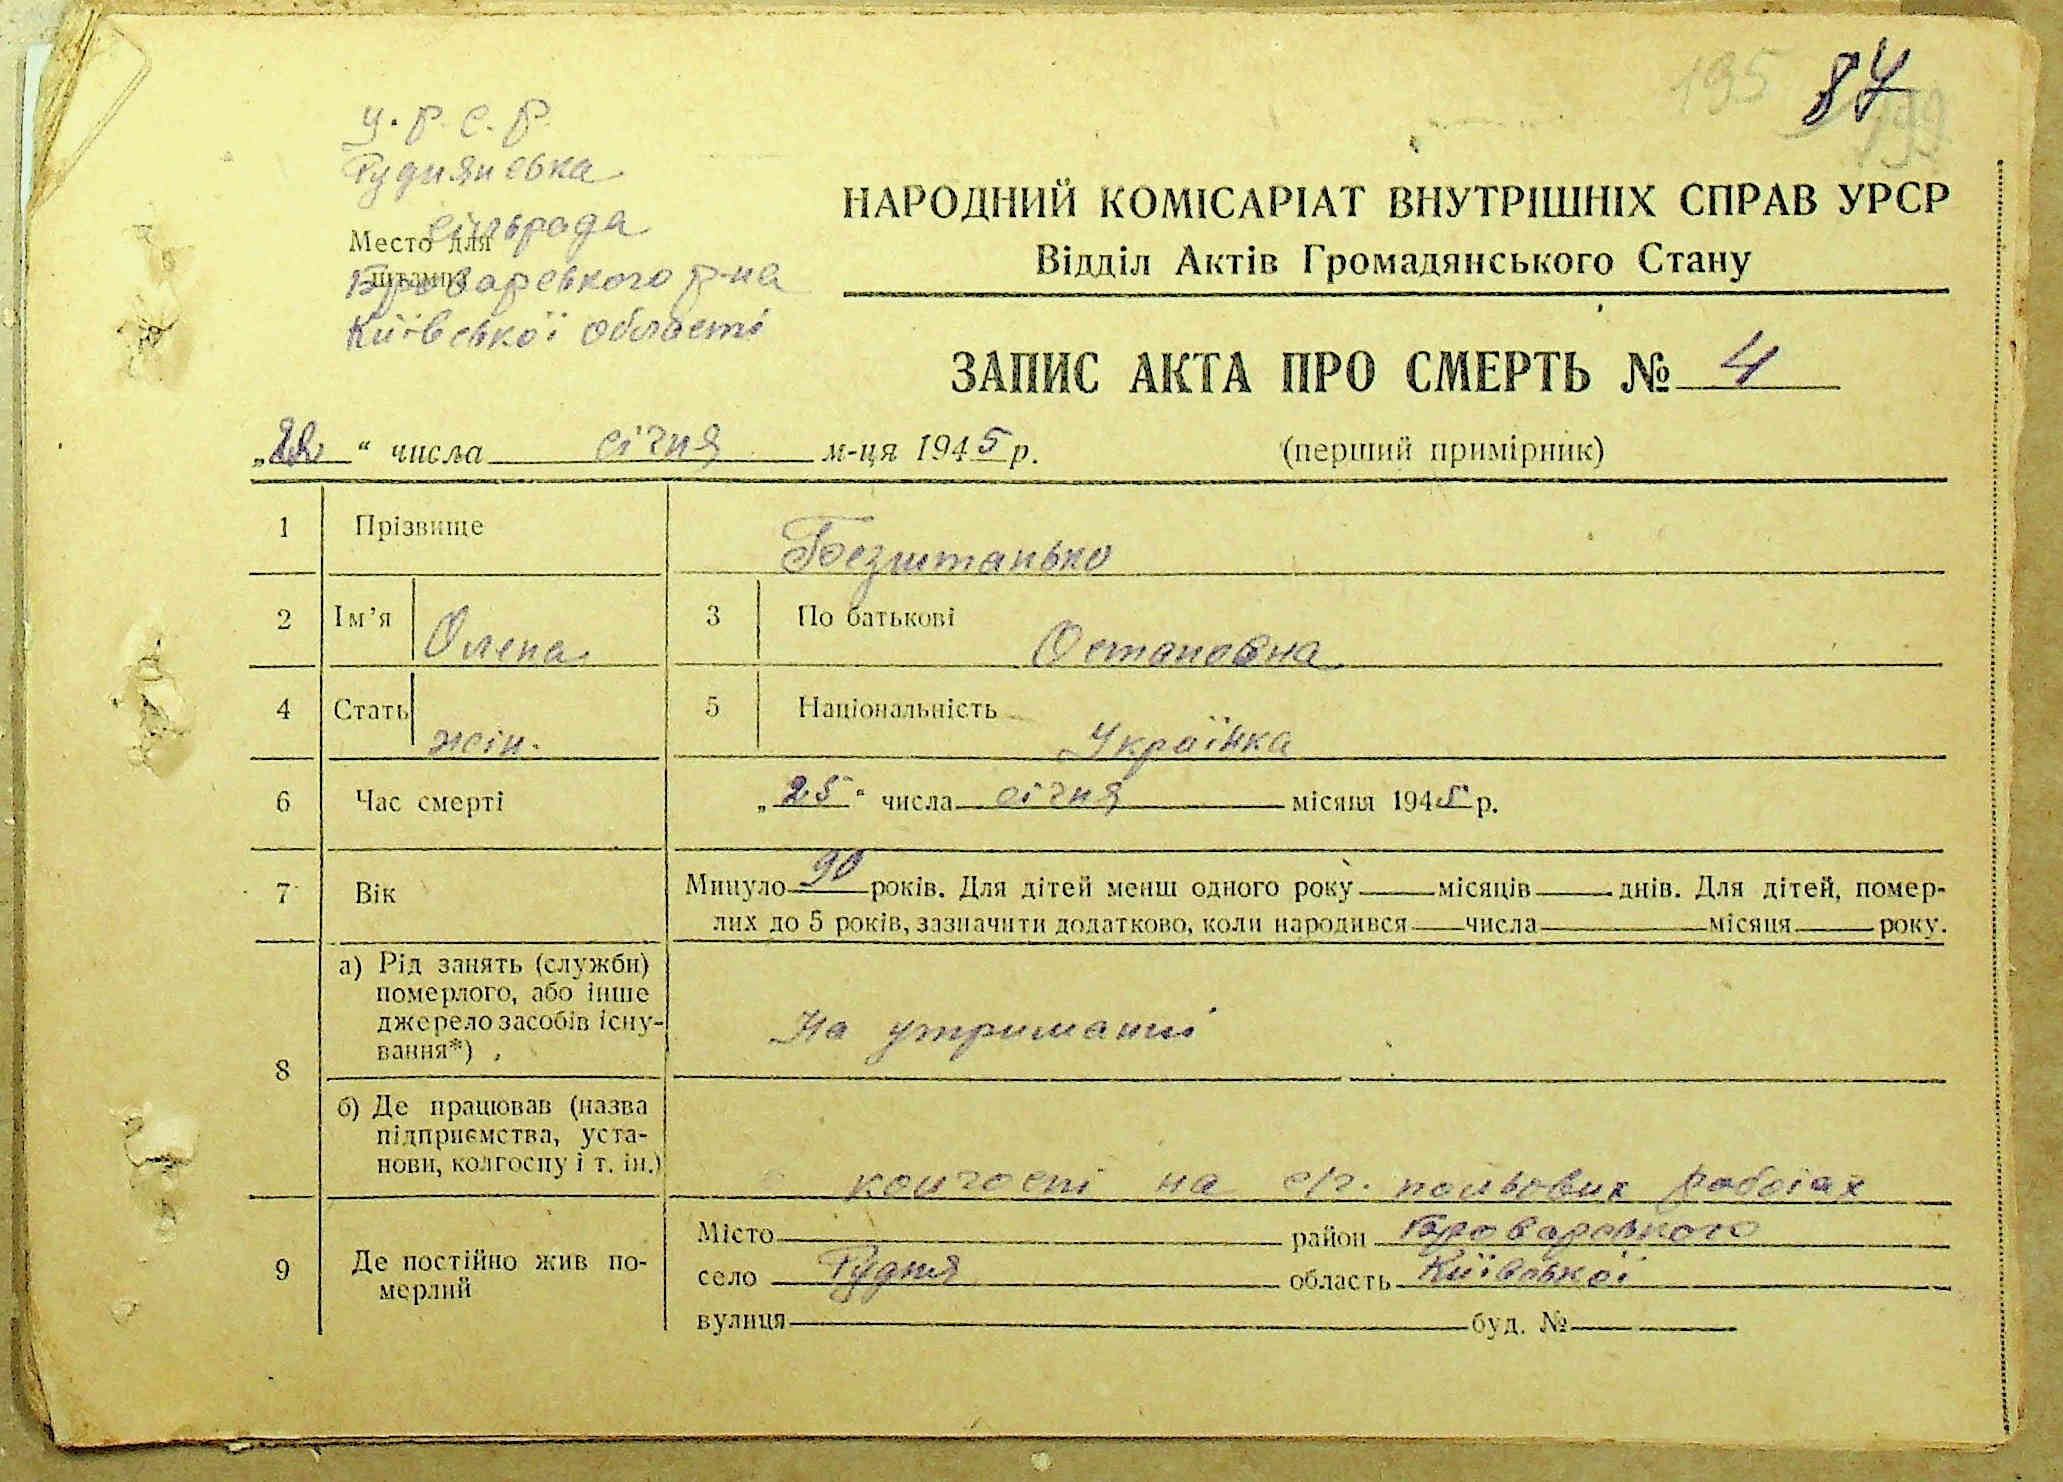 195 84
199
У.Р.С.Р.
Руднянська
сільрада
Место для
штампа
Броварського р-на
Київської області
НАРОДНИЙ КОМІСАРІАТ ВНУТРІШНІХ СПРАВ УРСР
Відділ Актів Громадянського Стану
ЗАПИС АКТА ПРО СМЕРТЬ № 4
“ числа січня м-ця 1945 р. (перший примірник)
1 Прізвище Безштанько
2 Ім’я Олена 3 По батькові Остаповна
4 Стать жін. 5 Національність Українка
6 Час смерті „25“ числа січня місяця 1945 р.
7 Вік Минуло 90 років. Для дітей менш одного року місяців днів. Для дітей, помер-
лих до 5 років, зазначити додатково, коли народився числа місяця року.
8 а) Рід занять (служби)
померлого, або інше
джерело засобів існу-
вання*)
На утриманні
б) Де працював (назва
підприємства, уста-
нови, колгоспу і т. ін.)
колгоспі на с/г. польових роботах
9 Де постійно жив по-
мерлий
Місто район Броварського
село Рудня область Київської
вулиця буд. №